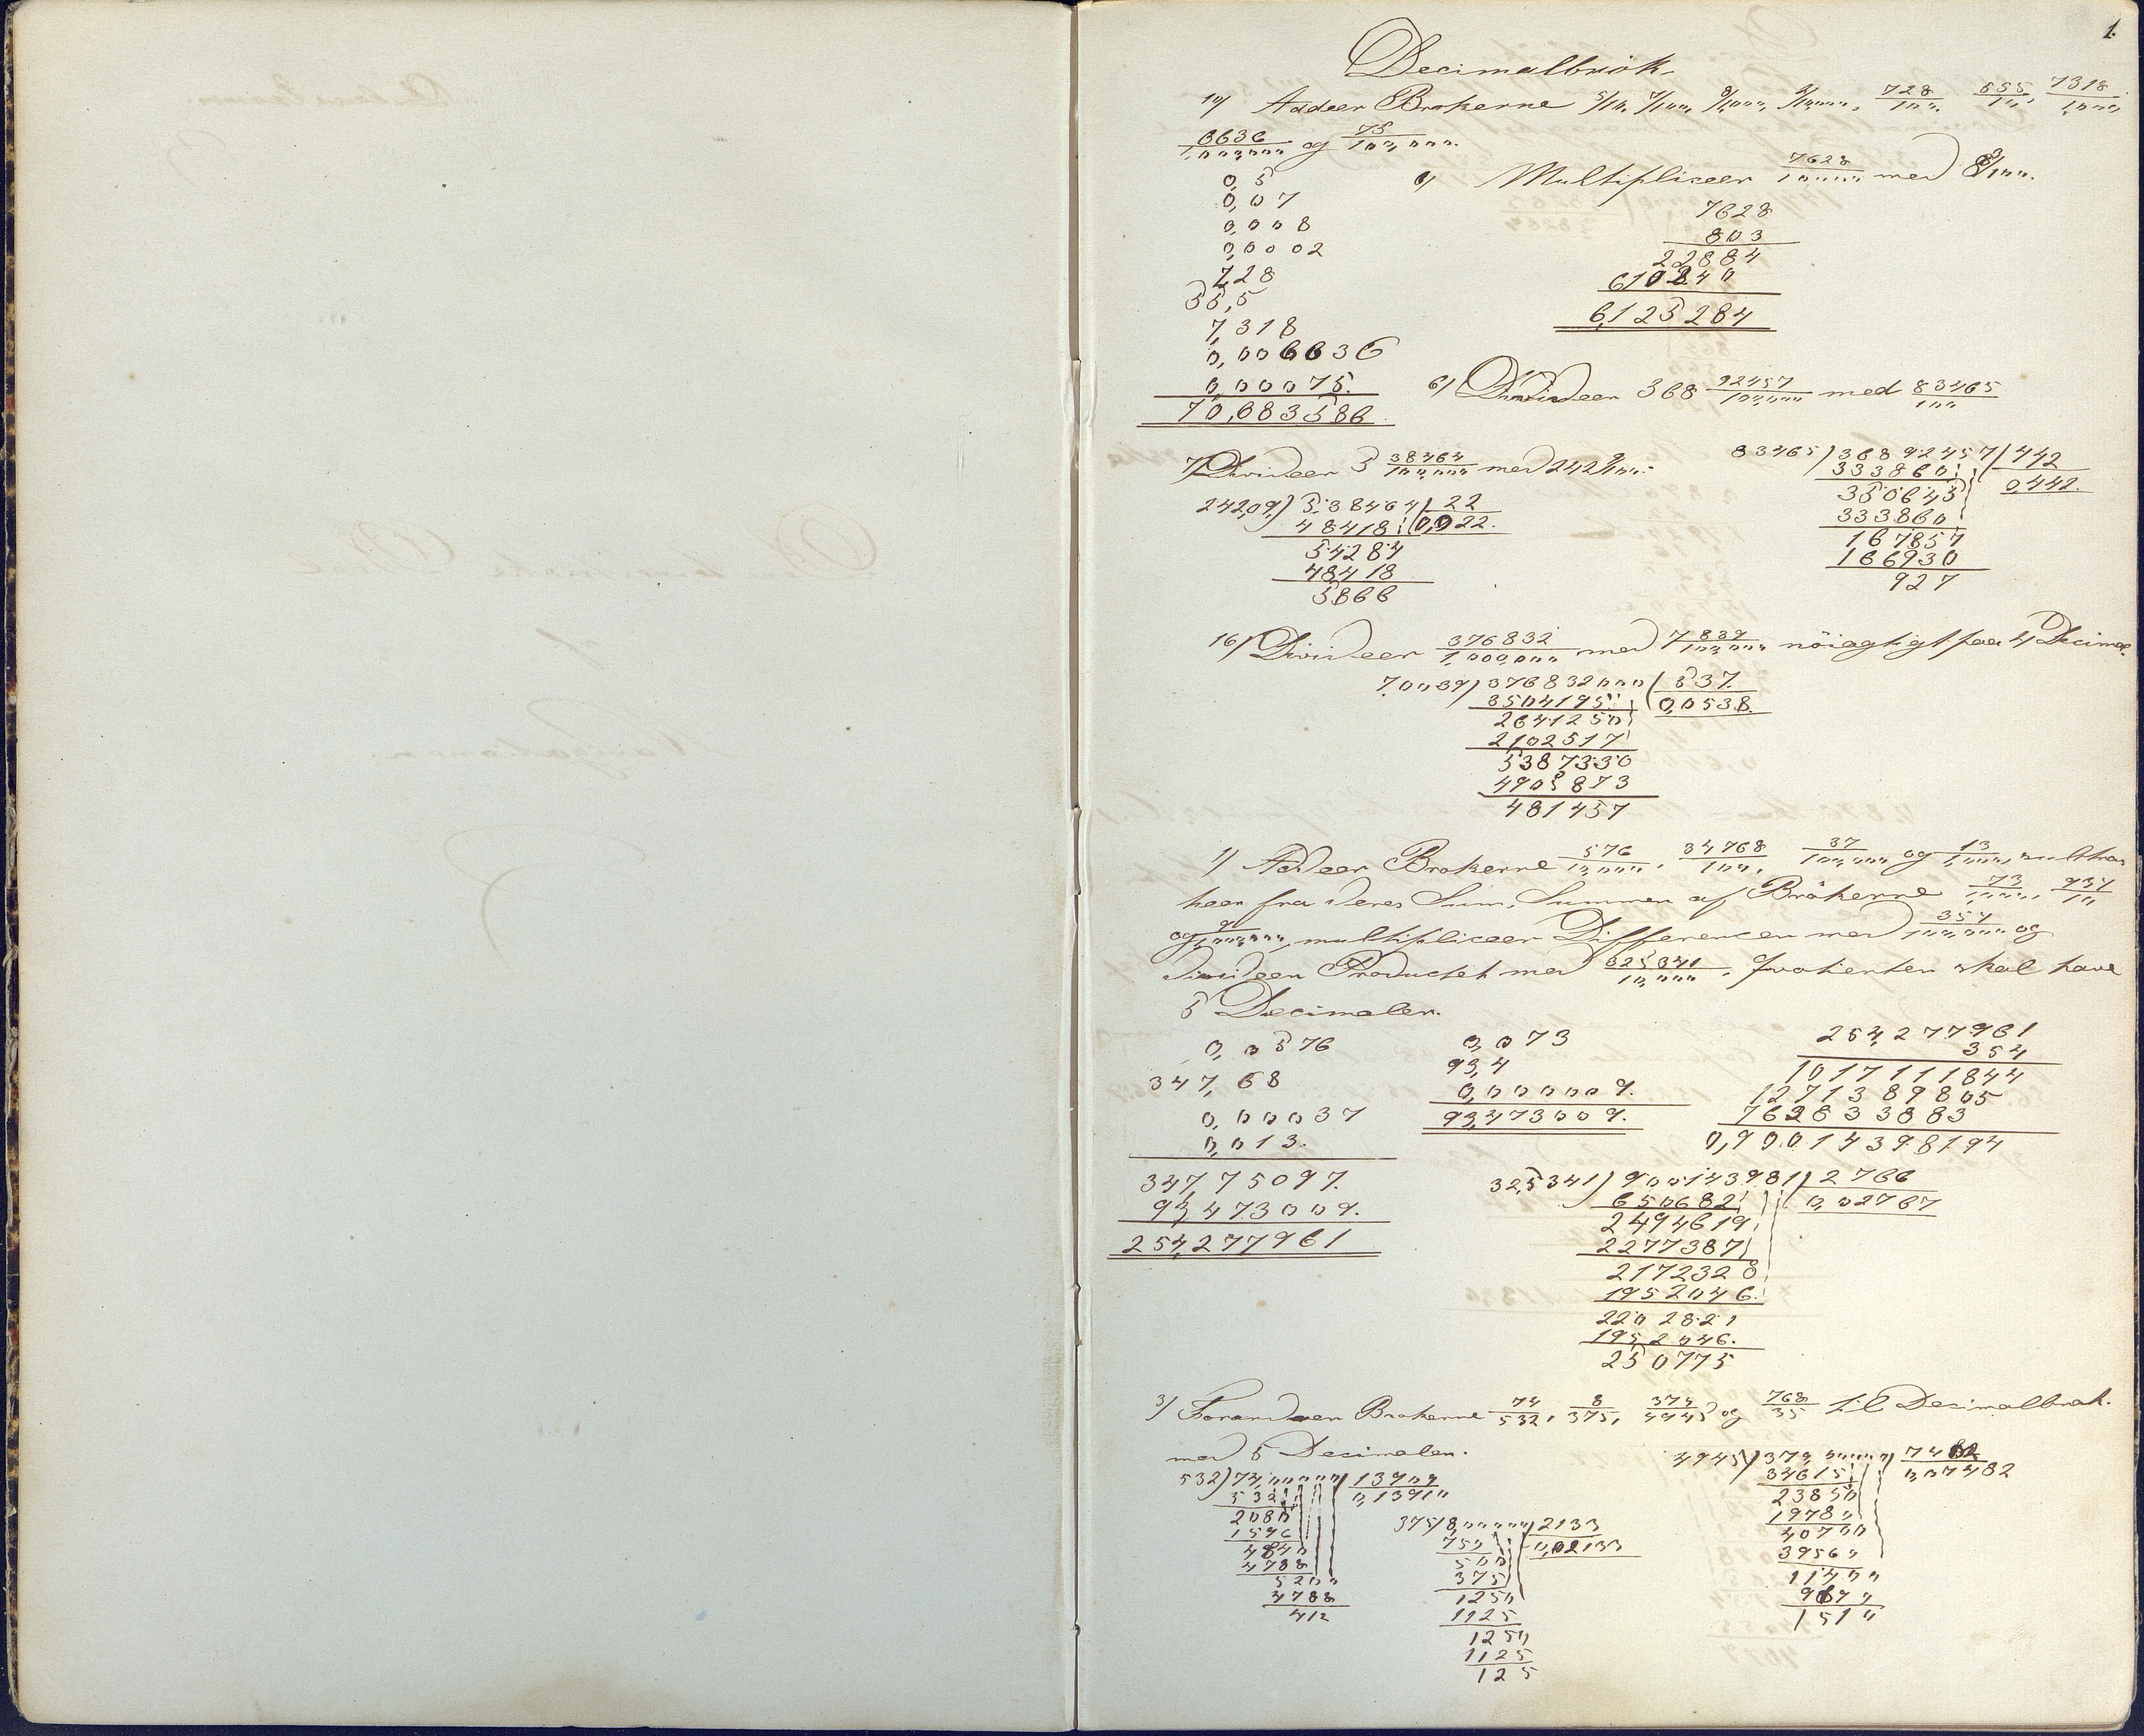 1.
Decimalbrøk.
10/ Addeer Brøkerne 5/10, 7/100, 8/1000, 2/10,000, 728/100, 555/10, 7318/1000,
6636/1,000,000 og 75/100,000.
0,5
0,07
0,008
0,0002
7,28
55,5
7,318
0,006636
0,000075.
70,683586
8/ Multipliceer 7628/10,000 med 8 3/100.
7628
803
22884
610240
6,125284
6/ Divideer 368 92457/100,000 med 83465/100
83465)36892457(442
333860 0,442.
350645
333860
167857
166930
927
7/ Divideer 5 38464/100,000 med 242 9/100.
242,09,)5,38464(22
48418 0,022.
54284
48418
5866
16/ Divideer 376832/1,000,000 med 7 839/100,000 nöiagtigt paa 4 Decimal.
7,0039)376832000(537.
3504195 0,0538.
2641250
2102517
5387330
4905873
481457
1/ Addeer Brøkerne 576/10,000, 34768/100, 37/100,000 og 13/1,000, subtra
heer fra deres Sum, Summen af Brøkerne 73/1,000, 934/10
og 9/1,000,000, multipliceer Differencen med 354/100,000 og
divideer Productet med 325341/10,000, Qvotienten skal have
5 Decimaler.
0,0576
347,68
0,00037
0,013.
347,75097.
93,473009.
254,277961
0,073
93,4
0,000009.
93,473009.
254,277961
354
1017111844
1271389805
762833883
0,90014398194
32,5341)900143981(2766
650682 0,02767
2494619
2277387
2172328
1952046.
2202821
1952046.
250775
3/ Forandeer Brøkerne 74/532, 8/375, 374/4945 og 768/35 til Decimalbrøk.
med 5 Decimaler.
532)74,00000(13909
532 0,13910
2080
1596
4840
4788
5200
4788
412
375)8,00000(2133
750 0,02133
500
375
1250
1125
1250
1125
125
4945)37,00000(7482
34615 0,07482
23850
19780
40700
39560
11400
9890
1510